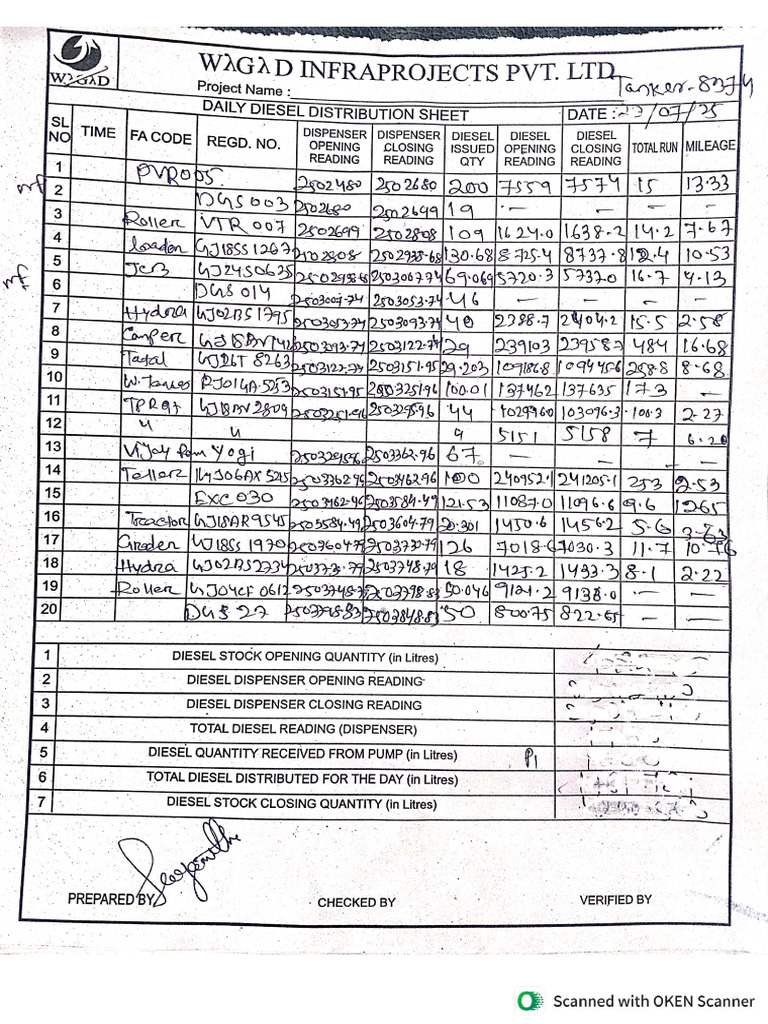 WλGλD
WλGλD INFRAPROJECTS PVT. LTD
Tanker-8374
Project Name :
DAILY DIESEL DISTRIBUTION SHEET DATE : 23/07/25
SL NO TIME FA CODE REGD. NO. DISPENSER OPENING READING DISPENSER CLOSING READING DIESEL ISSUED QTY DIESEL OPENING READING DIESEL CLOSING READING TOTAL RUN MILEAGE
1 PVR005 2502480 2502680 200 7559 7574 15 13.33
2 DGS003 2502680 2502699 19 - - - -
3 Roller VTR 007 2502699 2502808 109 1624.0 1638.2 14.2 7.67
4 Loader GJ18SS1267 2502808 2502938.68 130.68 8725.4 8737.8 12.4 10.53
5 JCB GJ24S0625 2503007.74 69.069 5720.3 5737.0 16.7 4.13
6 DGS014 2503007.74 2503053.74 46 - - - -
7 Hydra GJ02BS1795 2503053.74 2503093.74 40 2388.7 2404.2 15.5 2.58
8 Camper 2503093.74 2503122.74 29 239103 239587 484 16.68
9 Tata GJ26T 8263 2503122.74 2503151.95 29.203 109186.8 109445.6 258.8 8.68
10 W.Tanker RJ01GA5253 2503151.95 2503251.96 100.01 137462 137635 173 -
11 GJ18BV2809 2503251.96 2503295.96 44 1029960 103096.3 100.3 2.27
12 " " " 5151 5158 7 6.28
13 Vijay Yogi 2503295.96 2503362.96 67 - - - -
14 2503362.96 2503462.96 100 240952.1 241205.1 253 2.53
15 EXC030 2503462.96 2503584.49 121.53 11087.0 11096.6 9.6 12.65
16 Tractor GJ18AR9545 2503584.49 2503604.79 20.301 1450.6 1456.2 5.6 3.63
17 Grader GJ18SS1970 2503604.79 2503730.79 126 7018.6 7030.3 11.7 10.76
18 Hydra GJ02BS2734 2503730.79 2503748.79 18 1425.2 1433.3 8.1 2.22
19 Roller GJ04CF0612 2503748.79 2503798.83 50.046 9121.2 9138.0 - -
20 DGS 27 2503798.83 2503848.83 50 800.75 822.65 - -
1 DIESEL STOCK OPENING QUANTITY (in Litres)
2 DIESEL DISPENSER OPENING READING
3 DIESEL DISPENSER CLOSING READING
4 TOTAL DIESEL READING (DISPENSER)
5 DIESEL QUANTITY RECEIVED FROM PUMP (in Litres) P1
6 TOTAL DIESEL DISTRIBUTED FOR THE DAY (in Litres)
7 DIESEL STOCK CLOSING QUANTITY (in Litres)
PREPARED BY CHECKED BY VERIFIED BY
Scanned with OKEN Scanner